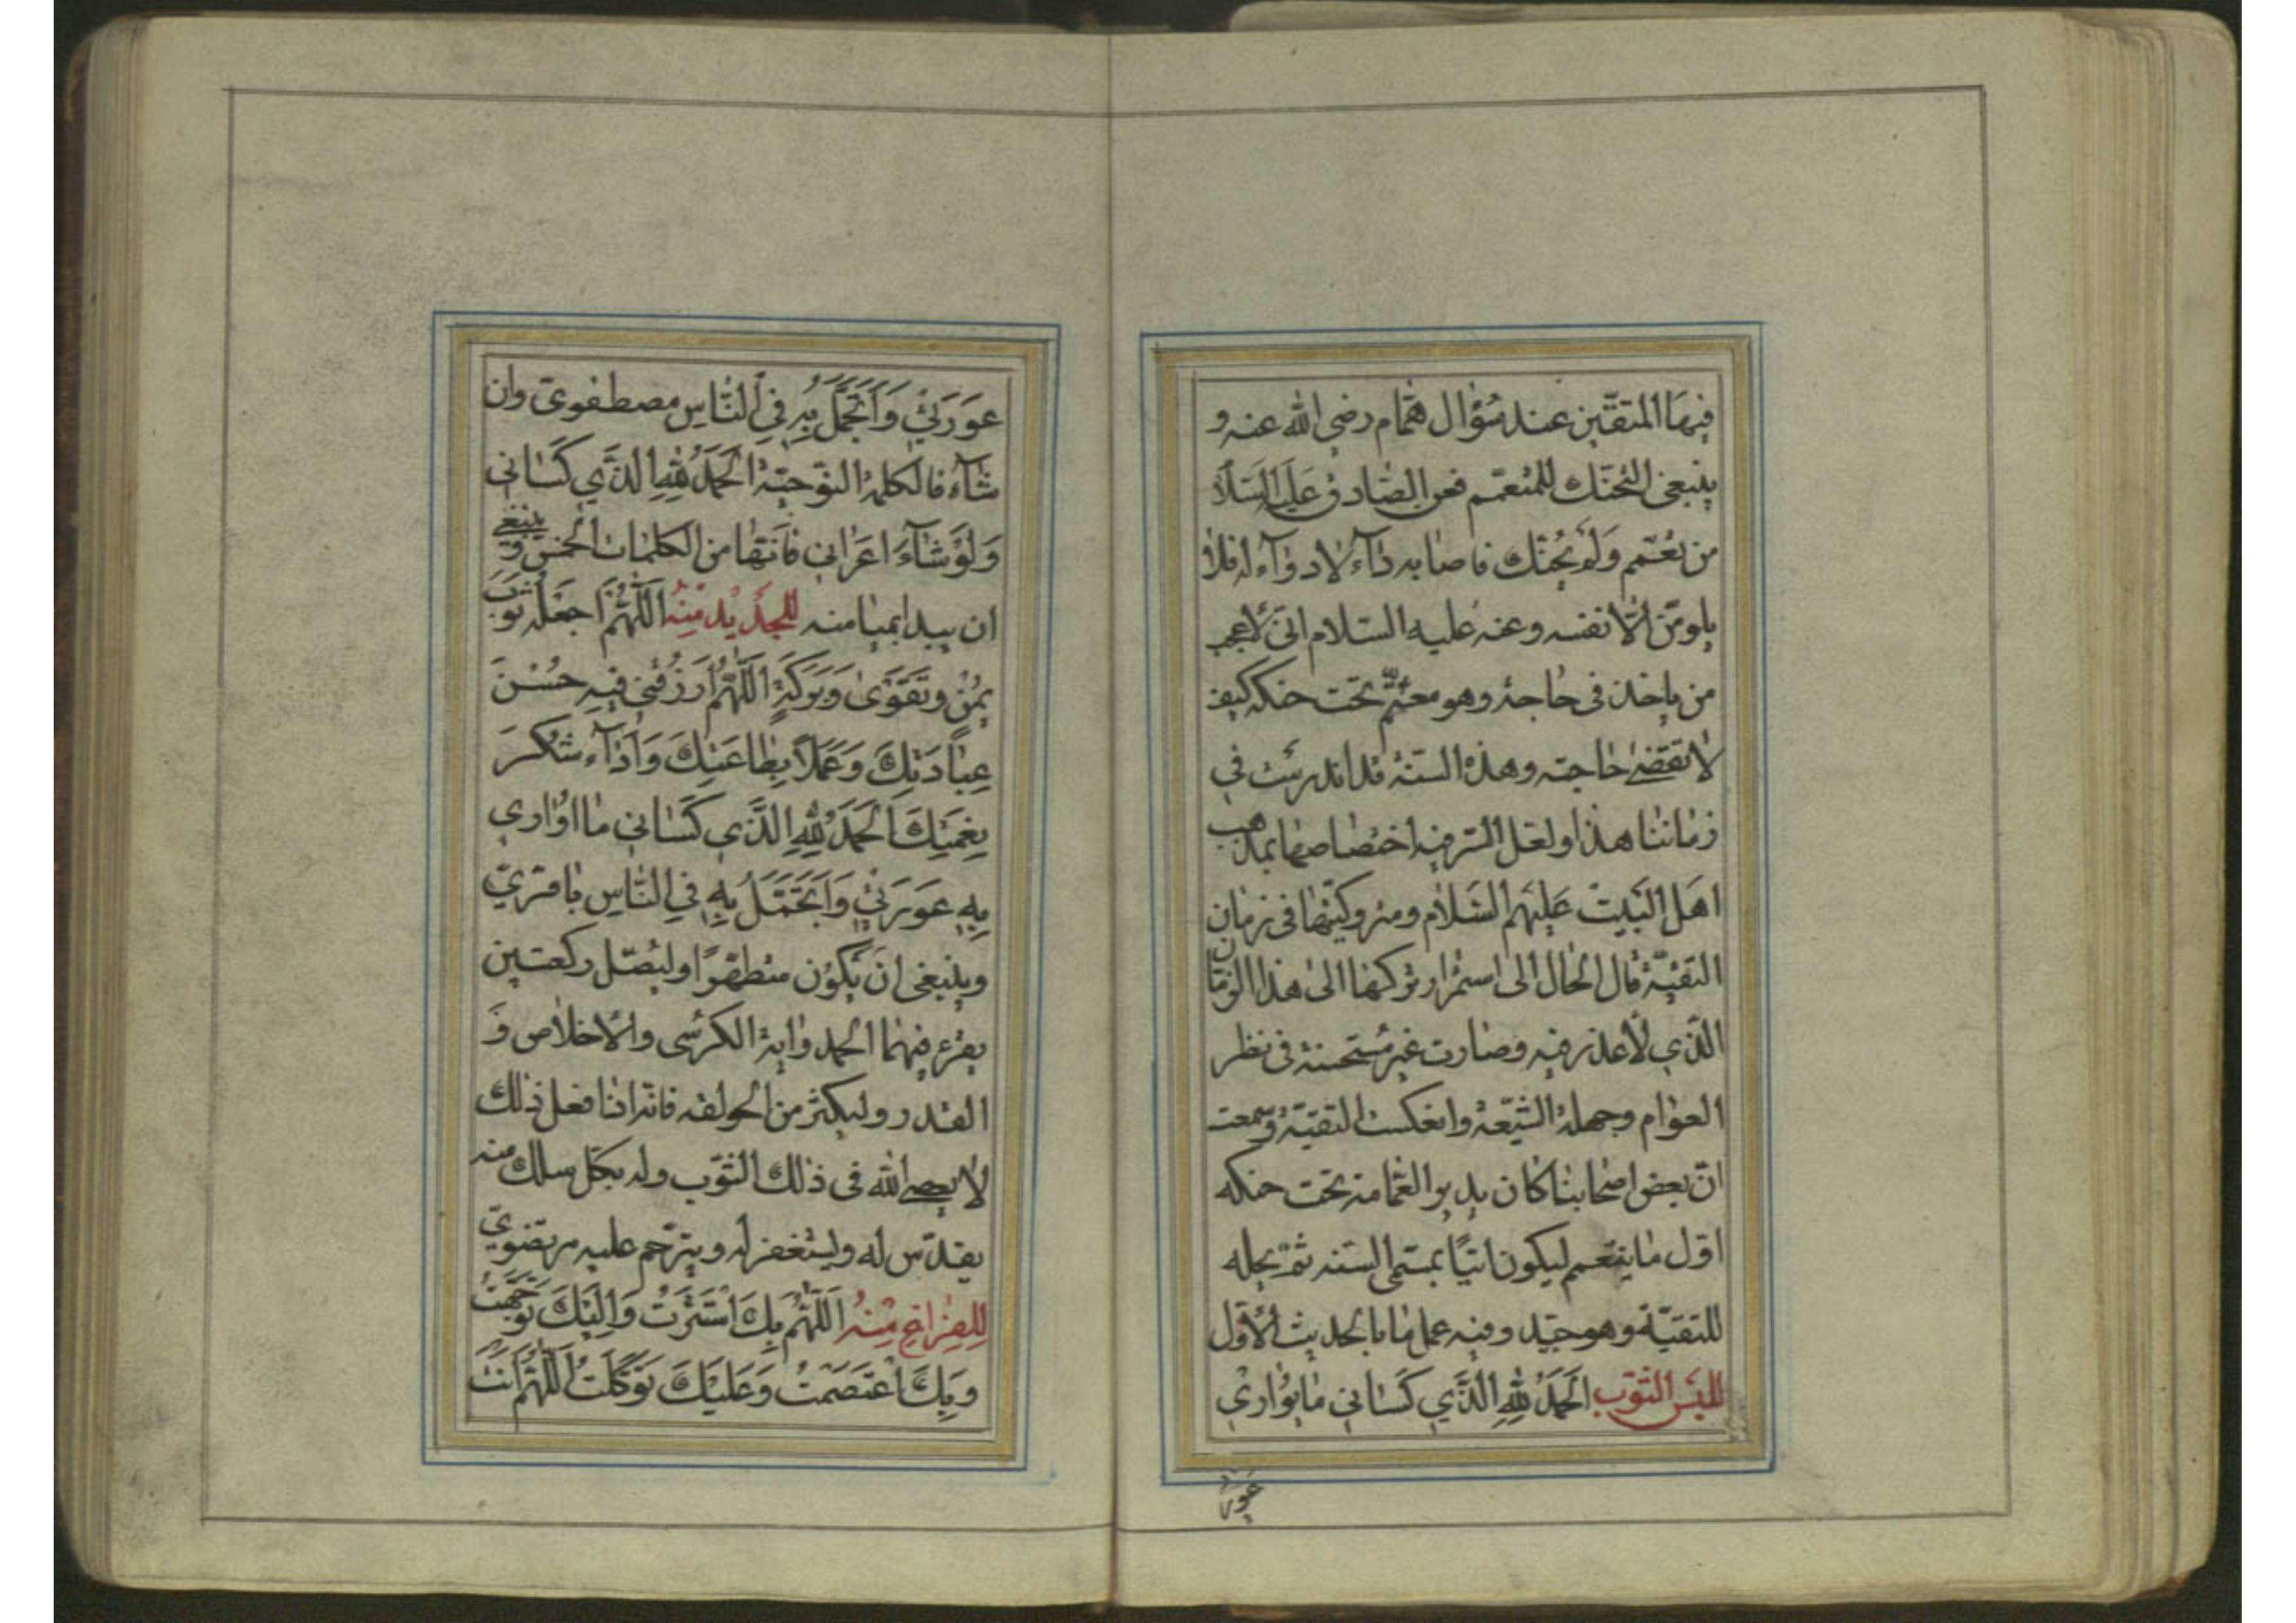 فيها المتقين عند سؤال همام رضي الله عنه و
ينبغي التحنك للمتعمم فعن الصادق عليه السلام
من تعمم ولم يحنك فاصابه داء لا دواء له فلا
يلومن الا نفسه وعنه عليه السلام اني لاعجب
من ياخذ في حاجة وهو معتم تحت حنكه كيف
لا تقضى حاجته وهذه السنة قد اندرست في
زماننا هذا ولعل السر فيه اختصاصها بمذهب
اهل البيت عليهم السلام ومتروكيتها في زمان
التقية فال الحال الى استمرار تركها الى هذا الزمان
الذي لا عذر فيه وصارت غير مستحسنة في نظر
العوام وجهلة الشيعة وانعكست التقية وسمعت
ان بعض اصحابنا كان يدير العمامة تحت حنكه
اول ما يتعمم ليكون اتيا بمسمى السنة ثم يحله
للتقية وهو جيد وفيه عمل ما بالحديث الاول
للبس الثوب الحمد لله الذي كساني ما يواري
عور
عورتي واتجمل به في الناس مصطفوي وان
شاء فالكلمة النوحية الحمد لله الذي كساني
ولو شاء اعراني فانها من الكلمات الخمس وينبغي
ان يبدا بميامنه للجديد منه اللهم اجعله ثوب
يمن وتقوى وبركة اللهم ارزقني فيه حسن
عبادتك وعملا بطاعتك واداء شكر
نعمتك الحمد لله الذي كساني ما اواري
به عورتي واتجمل به في الناس باقري
وينبغي ان يكون متطهرا وليصل ركعتين
يقرء فيهما الحمد واية الكرسي والاخلاص و
القدر وليكثر من الحولقة فانه اذا فعل ذلك
لا يعصى الله في ذلك الثوب وله بكل سلك منه
يقدس له وليستغفر له ويترحم عليه مرتضوي
للفراغ منه اللهم بك استترت واليك توجهت
وبك اعتصمت وعليك توكلت اللهم انت